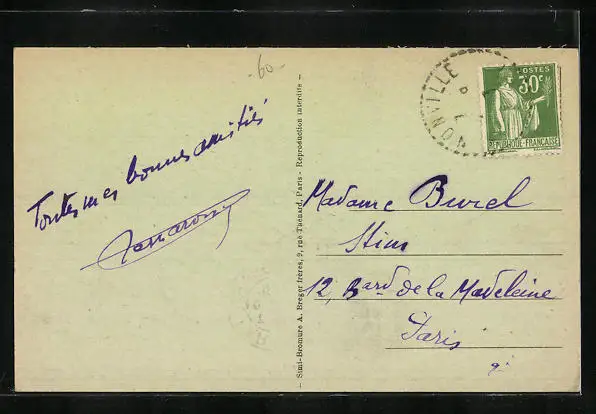 -60-
Toutes mes bonnes amitiés
Simi-Bromure A. Breger frères, 9, rue Thénard, Paris - Reproduction interdite -
POSTES
30c
REPUBLIQUE FRANÇAISE
Madame Burel
12, Bard de la Madeleine
Paris